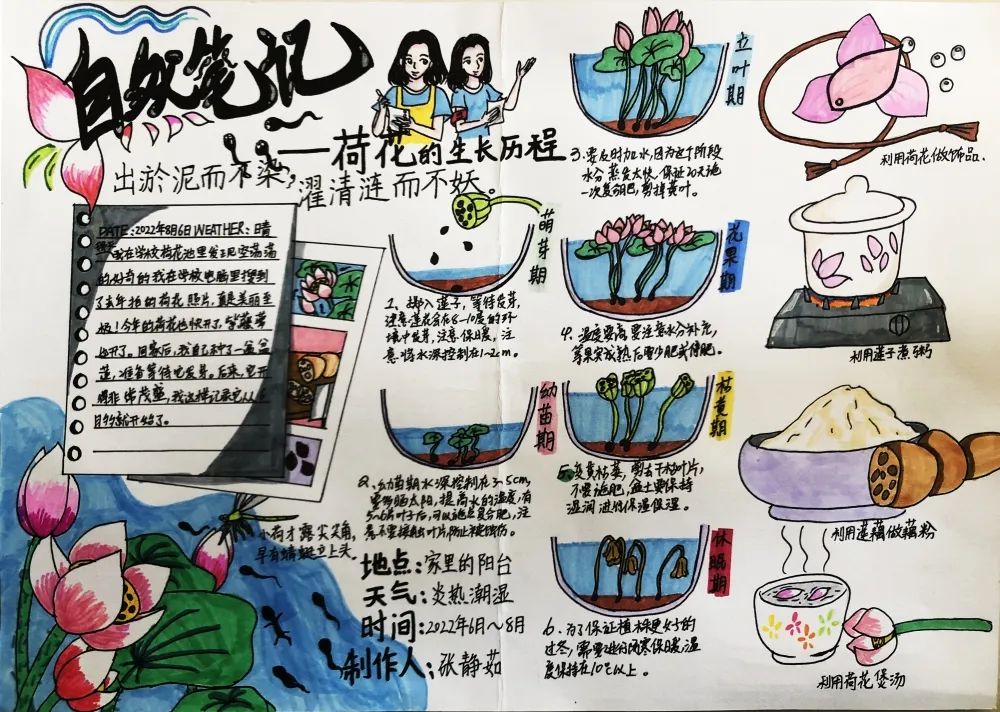 自然笔记
——荷花的生长历程
出淤泥而不染，
濯清涟而不妖。
DATE:2022年8月6日 WEATHER:晴
我在学校荷花池里发现空荡荡
的好奇的我在学校电脑里搜到
了去年拍的荷花照片,真是美丽至
极!今年的荷花也快开了,
开了。回家后,我自己种了一盆盆
莲,准备等待它发芽。后来,它开
得非常茂盛,我这样记录它从
开始了。
小荷才露尖尖角,
早有蜻蜓立上头。
萌芽期
1、放入莲子,等待发芽,
注意莲花会在8-10度的环
境中发芽,注意保暖,注
意将水深控制在1~2cm。
幼苗期
2、幼苗期水深控制在3~5cm,
要多晒太阳,提高水的温度,有
5~6片叶子后,可以施点复合肥,注
意不要接触叶片防止被烧伤。
地点:家里的阳台
天气:炎热潮湿
时间:2022年6月~8月
制作人:张静茹
立叶期
3.要及时加水,因为这个阶段
水分蒸发太快,保证20天施
一次复合肥,剪掉黄叶。
花果期
4.温度要高要注意水分补充,
等果实成熟后要少肥或停肥。
枯黄期
5.炎黄枯萎,剪去干枯叶片,
不要施肥,盆土要保持
湿润进行保温保湿。
休眠期
6.为了保证植株更好的
过冬,需要进行防寒保暖,温
度保持在10℃以上。
利用荷花做饰品.
利用莲子煮粥
利用莲藕做藕粉
利用荷花煲汤